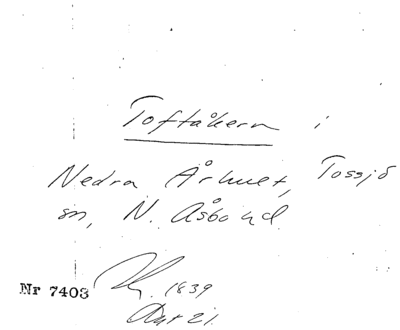 Toftåkern i
Nedra Århult, Tossjö
sn, N. Åsbo hd.
1839
Nr 7403
Akt 21.